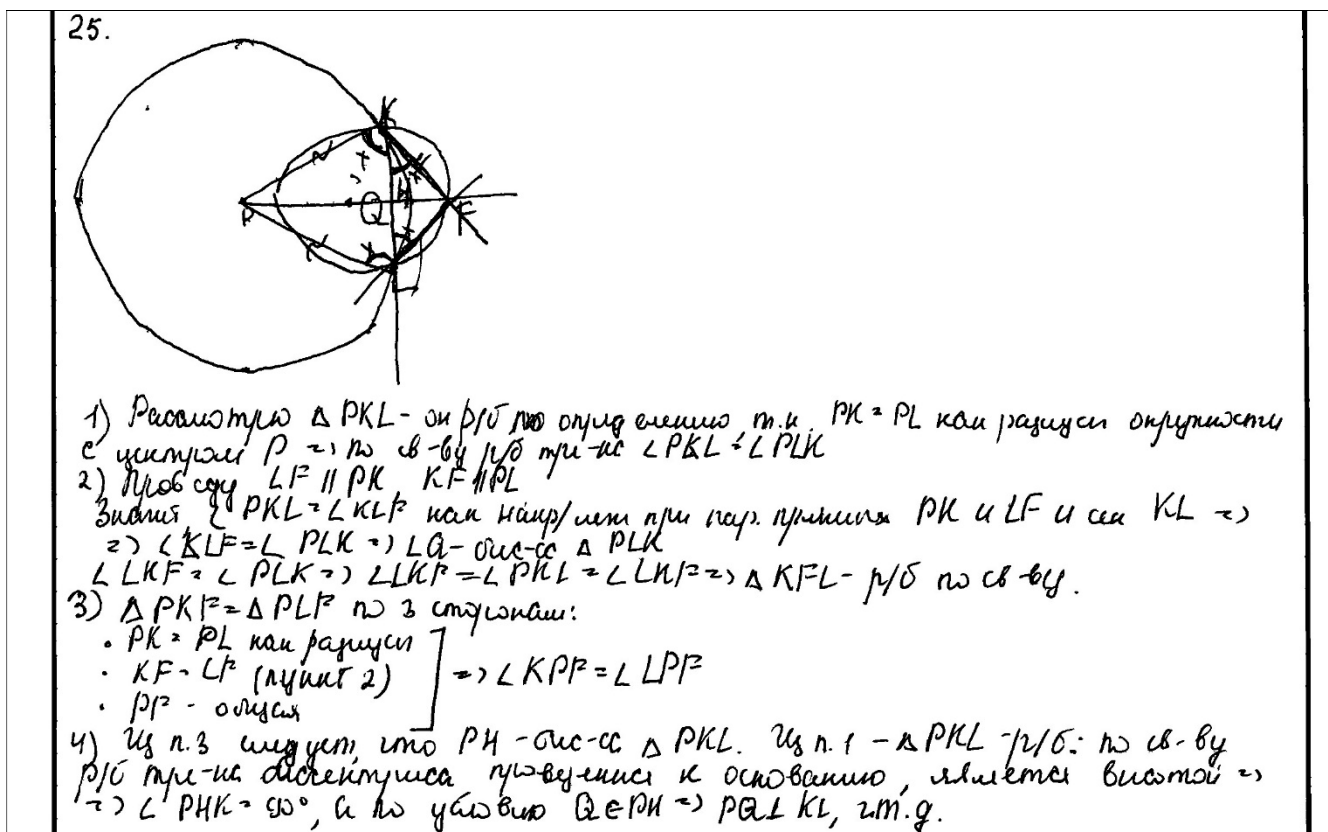 25.
K
P
Q
H
F
L
1) Рассмотрю Δ PKL - он р/б по определению т.к. PK = PL как радиусы окружности
с центром P => по св-ву р/б тре-ка ∠PKL = ∠PLK
2) Проведу LF || PK KF || PL
Значит ∠ PKL = ∠KLF как накр/леж при пар. прямых PK и LF и сек KL =>
=> ∠KLF = ∠ PLK => LQ - бис-са Δ PLK
∠ LKF = ∠ PLK => ∠LKF = ∠PKL = ∠LKF => Δ KFL - р/б по св-ву.
3) Δ PKF = Δ PLF по 3 сторонам:
• PK = PL как радиусы
• KF = LF (пункт 2) => ∠ KPF = ∠ LPF
• PF - общая
4) Из п.3 следует, что PH - бис-са Δ PKL. Из п.1 - Δ PKL - р/б: по св-ву
р/б тре-ка биссектриса проведенная к основанию, является высотой =>
=> ∠ PHK = 90°, а по условию Q ∈ PH => PQ ⊥ KL, ч.т.д.